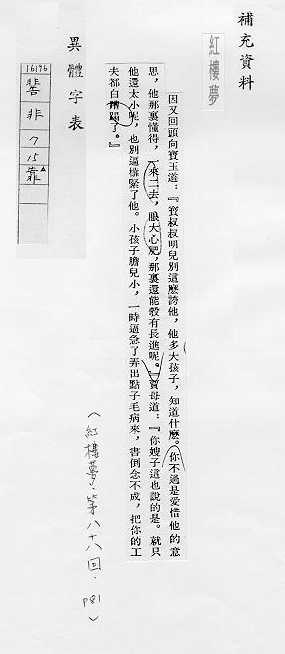 補充資料
紅樓夢
因又回頭向寶玉道：『寶叔叔明兒別這麽誇他，他多大孩子，知道什麽。你不過是愛惜他的意
思，他那裏懂得，一來二去，眼大心肥，那裏還能彀有長進呢。』賈母道：『你嫂子這也說的是。就只
他還太小呢，也別逼㩙緊了他。小孩子膽兒小，一時逼急了弄出點子毛病來，書倒念不成，把你的工
夫都白蹧蹋了。』
（紅樓夢．第八十八回．P81）
異體字表
16176
非
7
15
靠